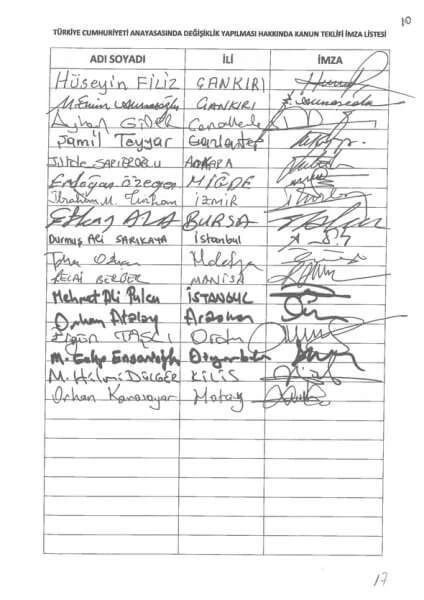 10
TÜRKİYE CUMHURİYETİ ANAYASASINDA DEĞİŞİKLİK YAPILMASI HAKKINDA KANUN TEKLİFİ İMZA LİSTESİ
ADI SOYADI İLİ İMZA
Hüseyin FİLİZ ÇANKIRI
M. Emin ÇANKIRI
Ayhan Gider Çanakkale
Şamil Tayyar Gaziantep
Jülide SARIEROĞLU ANKARA
Erdoğan Özegen NİĞDE
İbrahim M. Turhan İZMİR
Efkan ALA BURSA
Durmuş Ali SARIKAYA İstanbul
Malatya
BERBER MANİSA
Mehmet Ali Pulcu İSTANBUL
Orhan Atalay Ardahan
Ergün TAŞCI Ordu
M. Galip Ensarioğlu Diyarbakır
M. Hilmi DÜLGER KİLİS
Orhan Karasayar Hatay
17